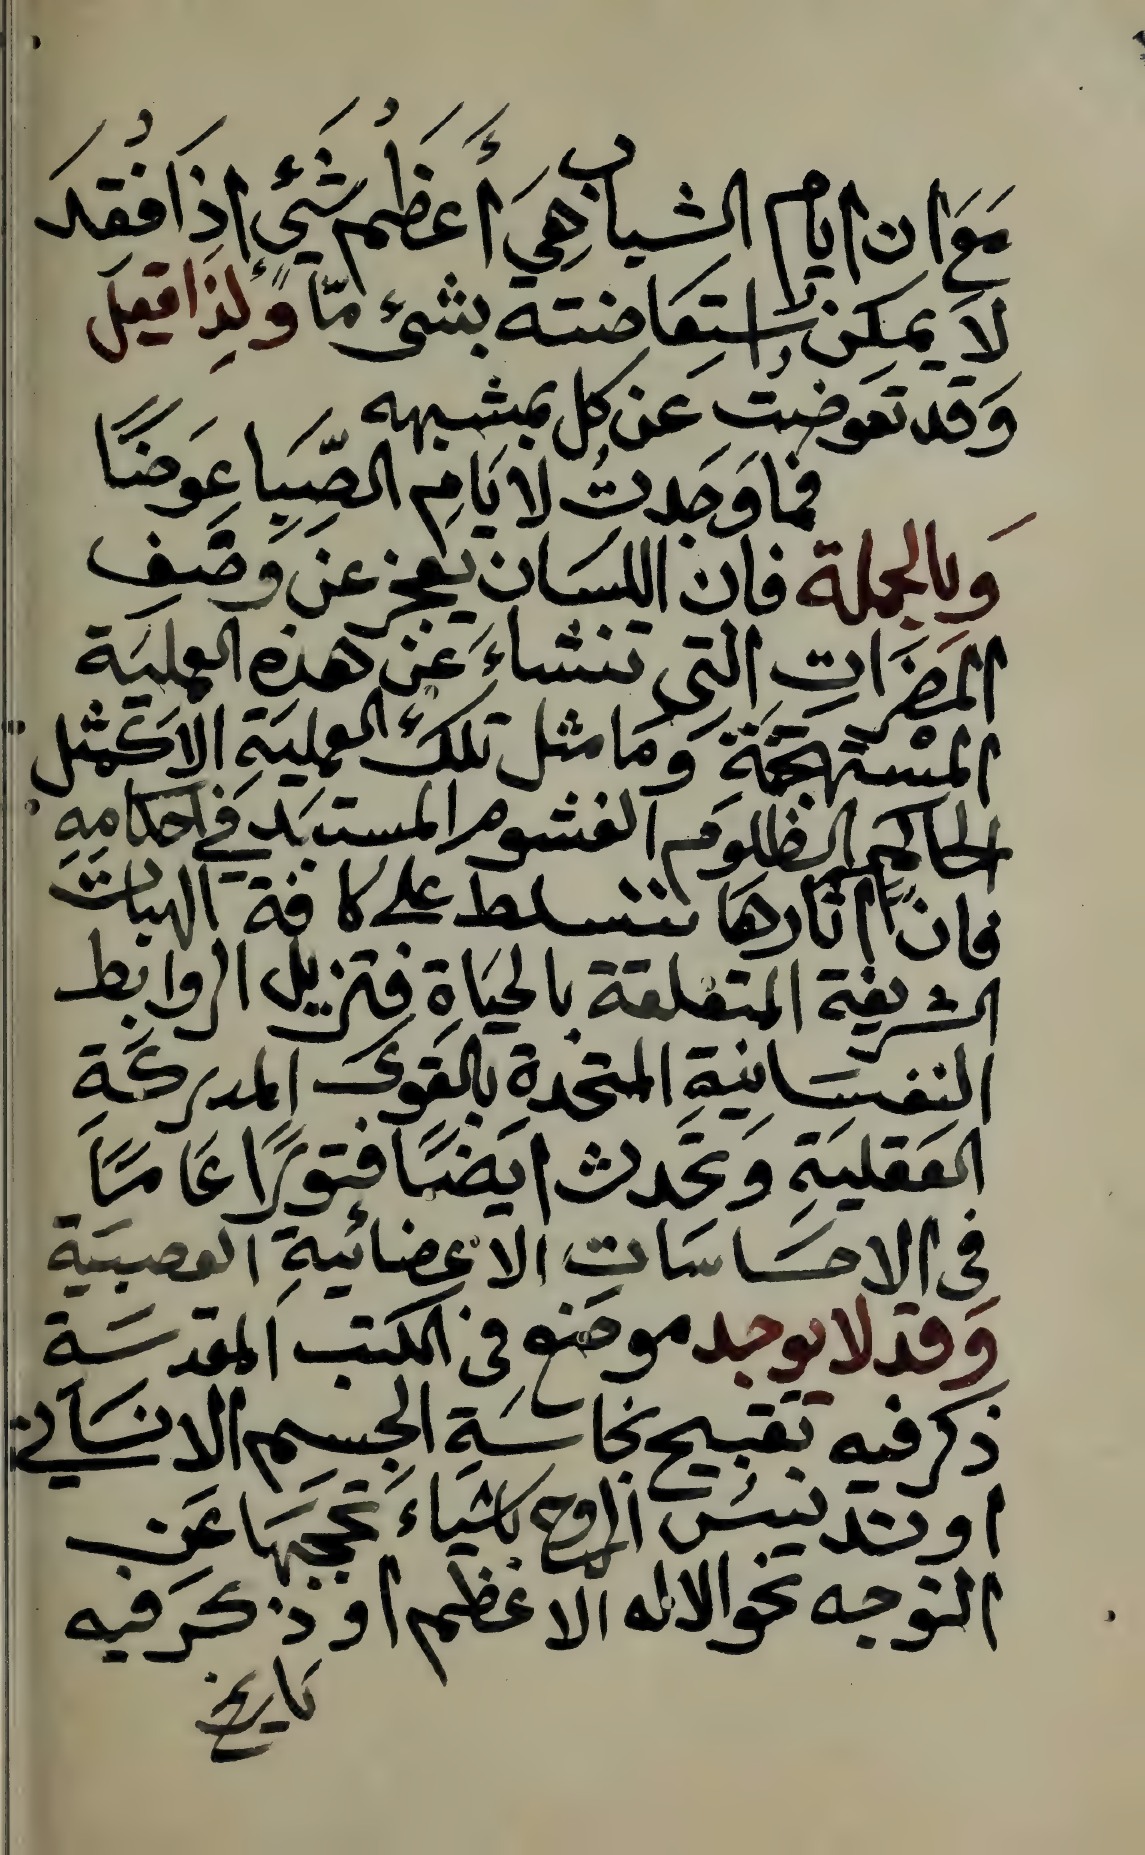 مَعَ ان ايام الشباب هِيَ أَعظَمُ شَيْءٍ اِذَا فُقِدَ
لا يمكِن اِستِعَاضته بشىءٍ مّا وَلِذا قيل
وَقد تعوضتُ عَن كل بمشبهه
فما وَجَدتُ لايَامِ الصِّبَا عِوَضًا
وَبالجملة فان اللسَان يعجز عَن وَصْفِ
المَضَرَاتِ التِى تنشاءَ عَن هَذِهِ العملِيَة
المسْتهجَنَةِ وَمَا مثل تلكَ العمليَةِ الا كَمثل
الحَاكم الظلوم الغشوم المستبَد فى احكامِهِ
فان آثارهَا تتسلط على كافة الهبات
الشريفة المتعلقة بالحيَاةِ فتزيل الروابط
النفسَانِيةِ المتحدة بالقوىَ المدرِكَةِ
العَقليَةِ وَتحَدث ايضًا فتورًا عَامًا
فى الاحسَاسَاتِ الاعضائيةِ العصبيَة
وَقد لا يوجد موضَع فى الكتب المقدسَة
ذكر فيه تقبيح نجاسَةِ الجسم الانسَانى
او تدنيس الروح باشيَاءَ تحجبهَا عَن
التوجه نحو الاله الاعظم او ذكرَ فيه
تاريخ